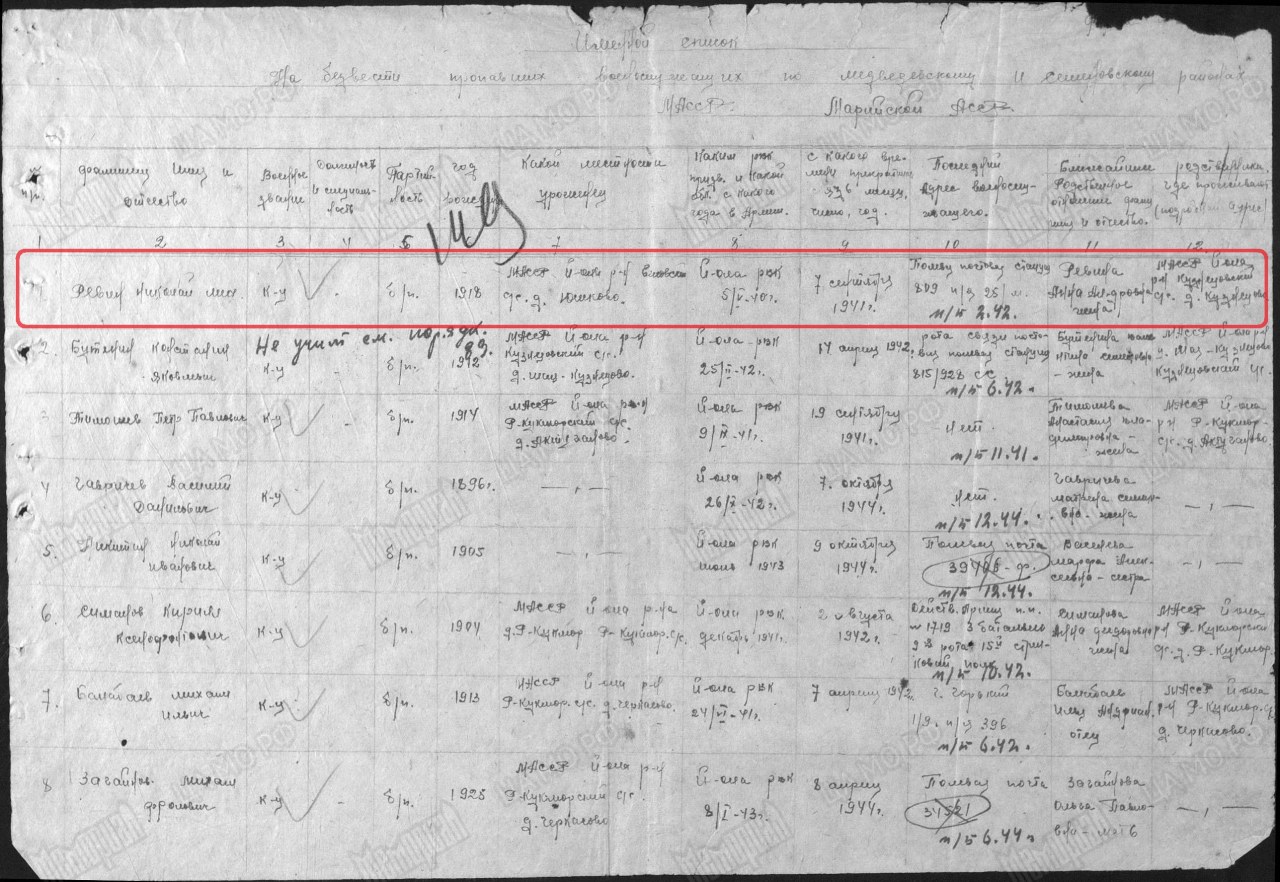 Именной список
На безвести пропавших военнослужащих по медведевскому и семеновскому районах
МАССР. Марийской АССР
№ п/п. Фамилия имя и отчество
Военное звание
Должность и специальность
Партийность
год рождения
Какой местности уроженец
Каким рвк призв. и какой обл. с какого года в Армии.
с какого времени прекратилась связь месяц, число, год.
Последний Адрес военнослужащего.
Ближайшие родственники.
Родственное отношение фам. имя и отчество.
где проживает (подробный адрес)
1 2 3 4 5 7 8 9 10 11 12
Ревин Николай мих. к-у - б/п. 1918
МАССР Й-олин р-н
с/с. д. Юшково.
Й-ола рвк
5/V-40г.
7 сентября
1941г.
Полевая почтовая станция
809 п/я 25/м.
п/б 2.42.
Ревина
Анна
жена
МАССР Й-ола
р-н Кузнецовский
с/с. д. Кузнецово
2. Бутенин
Яковлевич
Не учит см. поряд.
к-у б/п. 1942
МАССР Й-ола р-н
Кузнецовский с/с.
д. Кузнецово.
Й-ола рвк
25/II-42г.
17 апреля 1942г.
рота связи почтовая полевая станция
815/928 сс
п/б 6.42.
- жена
МАССР Й-ола р-н
Кузнецовский с/с.
3 Тимошев Петр Павлович к-у б/п. 1914
МАССР Й-ола р-н
Р-Кукморский с/с.
д. Актуганово.
Й-ола рвк
9/IX-41г.
19 сентября
1941г.
Нет.
п/б 11.41.
Тимошева
Анастасия Владимировна -
жена
МАССР Й-ола
р-н Р-Кукмор.
с/с. д. Актуганово.
4 Гавричев Василий
Данилович
к-у б/п. 1896г. — „ —
Й-ола рвк
26/II-42г.
7. октября
1944г.
Нет.
п/б 12.44.
Гавричева
жена
— „ —
5. Никитин Николай
Иванович
к-у б/п. 1905 — „ —
Й-ола рвк
июнь 1943
9 октября
1944г.
Полевая почта
39466-ф.
п/б 12.44.
Васильева
марфа
- сестра
— „ —
6. Смирнов Кирилл
Ксенофонтович
к-у б/п. 1904
МАССР Й-ола р-на
д. Р-Кукмор Р-Кукмор. с/с.
Й-ола рвк
декабрь 1941г.
2 августа
1942г.
Действ. Армия п.п.
№ 1719 3 батальон
9я рота 15й стрелковый полк
п/б 10.42.
Смирнова
Анна Федоровна
жена
МАССР Й-ола
р-н Р-Кукморский
с/с. д. Р-Кукмор.
7. михаил
Ильич
к-у б/п. 1913
МАССР Й-ола р-н
Р-Кукмор. с/с. д. Черкасово.
Й-ола рвк
24/VI-41г.
7 апреля 1942г.
г. Горький
1/9. п/я 396
п/б 6.42.
Илья
отец
МАССР Й-ола
р-н Р-Кукмор. с/с
д. Черкасово.
8 Загайнов михаил
Фролович
к-у - б/п. 1925
МАССР Й-ола р-н
Р-Кукморский с/с.
д. Черкасово
Й-ола рвк
8/I-43г.
8 апреля
1944г.
Полевая почта
34521
п/б 6.44.
Загайнова
Ольга Павловна - мать
— „ —
ЦАМО РФ
Мемориал